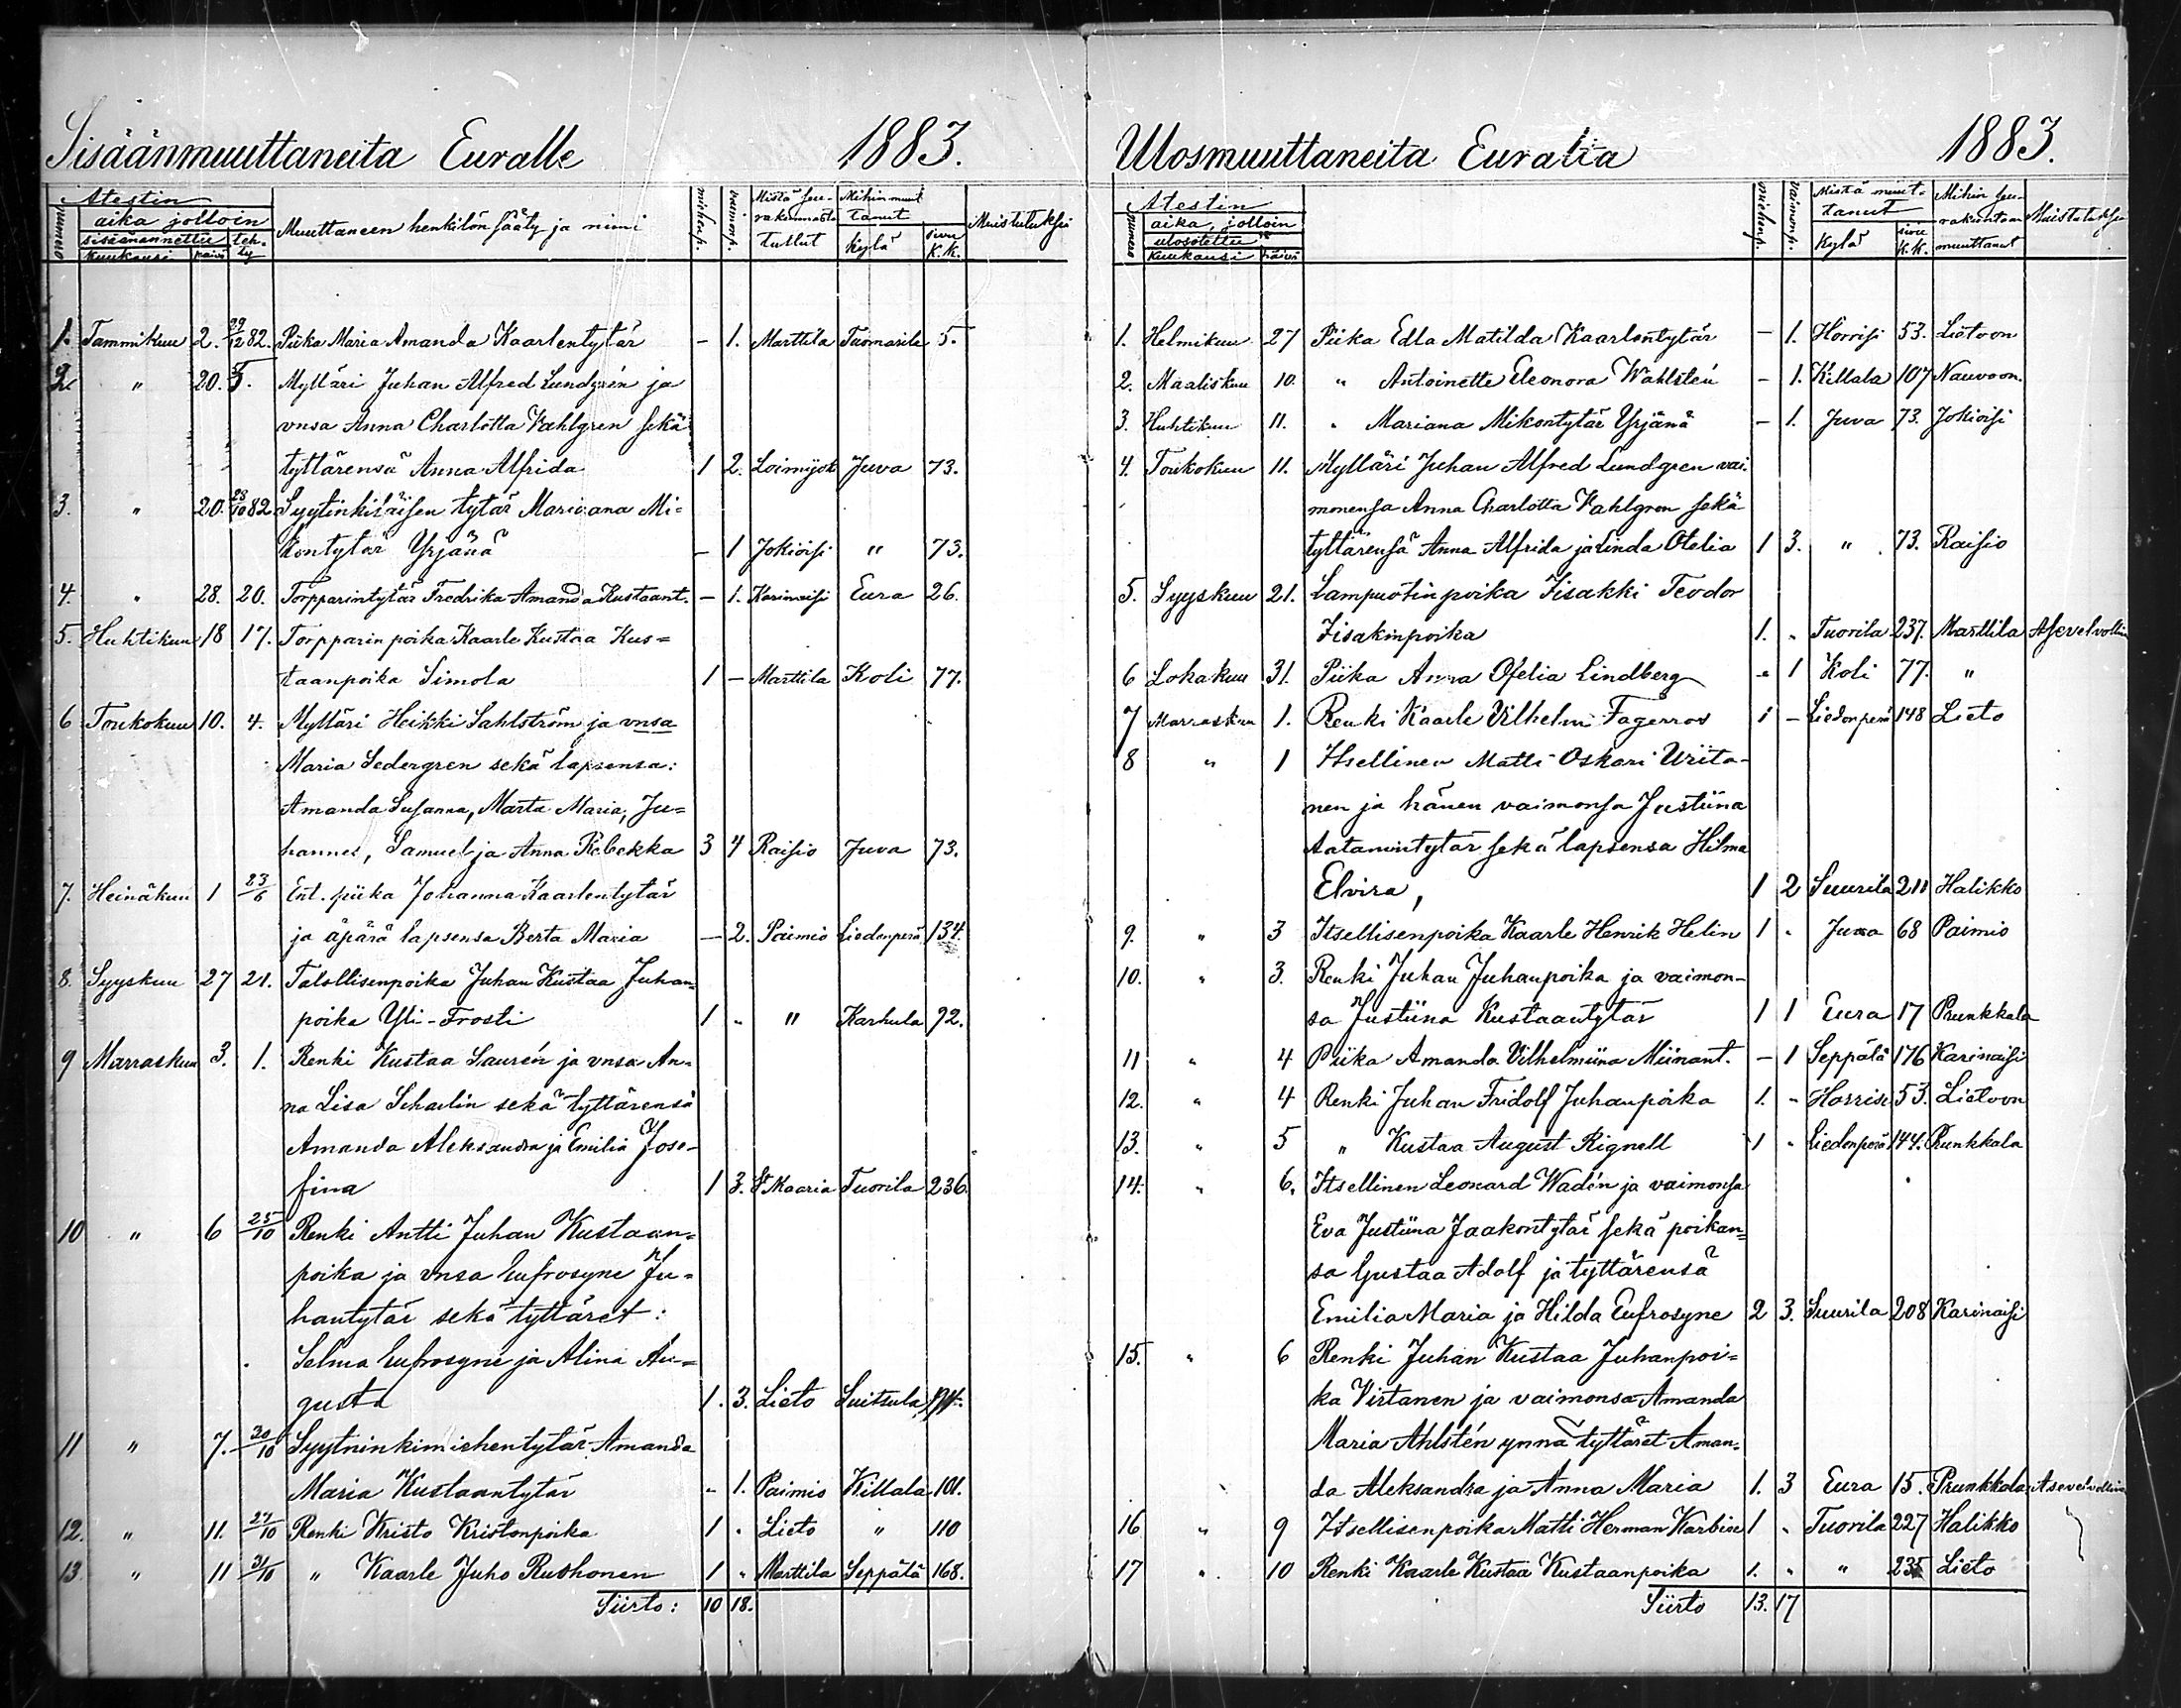 Sisäänmuuttaneita Euralle 1883.
Atestin
numero
aika jolloin
sisäänannettu teh-
kuukausi päivä ty
Muuttaneen henkilön sääty ja nimi
miehenp.
vaimonp.
Mistä seu-
rakunnasta
tullut
Mihin muut
tanut
kylä
sivu
K.K.
Muistutuksia
1. Tammikuu 2. 29/12 82. Piika Maria Amanda Kaarlentytär - 1. Marttila Tuomarila 5.
2. " 20. 5. Mylläri Juhan Alfred Lundgrén ja
vnsa Anna Charlotta Vahlgren sekä
tyttärensä Anna Alfrida 1 2. Loimijok Juva 73.
3. " 20. 28/10 82 Syytinkiläisen tytär Mariana Mi-
kontytär Yrjänä - 1 Jokioisi " 73.
4. " 28. 20. Torpparintytär Fredrika Amanda Kustaant. - 1. Karinaisi Eura 26.
5. Huhtikuu 18 17. Torpparin poika Kaarle Kustaa Kus=
taanpoika Simola 1 - Marttila Koli 77.
6 Toukokuu 10. 4. Mylläri Heikki Sahlström ja vnsa
Maria Sedergren sekä lapsensa:
Amanda Susanna, Marta Maria, Ju=
hannes, Samuel ja Anna Rebekka 3 4 Raisio Juva 73.
7. Heinäkuu 1 23/6 Ent. piika Johanna Kaarlentytär
ja äpärä lapsensa Berta Maria - 2. Paimio Liedonperä 134.
8. Syyskuu 27 21. Talollisenpoika Juhan Kustaa Juhan-
poika Yli-Frosti 1 " " Karhula 92.
9 Marraskuu 3. 1. Renki Kustaa Laurén ja vnsa An-
na Lisa Schalin sekä tyttärensä
Amanda Aleksandra ja Emilia Jose-
fina 1 3. St Maaria Tuorila 236.
10 " 6 25/10 Renki Antti Juhan Kustaan=
poika ja vnsa Eufrosyne Ju=
hantytär sekä tyttäret:
Selma Eufrosyne ja Alina Au=
gusta 1. 3. Lieto Suitsula
11 " 7. 30/10 Syytninkimiehentytär Amanda
Maria Kustaantytär - 1. Paimio Killala 101.
12. " 11. 27/10 Renki Kristo Kristonpoika 1 " Lieto " 110
13 " 11 31/10 " Kaarle Juho Ruohonen 1 " Marttila Seppälä 168.
Siirto: 10 18.
Ulosmuuttaneita Euralta 1883.
Atestin
numero
aika, jolloin
ulosotettu
kuukausi päivä
miehenp.
vaimonp.
Mistä muut-
tanut
kylä
sivu
K.K.
Mihin seu-
rakuntaan
muuttanut
Muistutuksia
1. Helmikuu 27 Piika Edla Matilda Kaarlentytär - 1. Horrisi 53. Lietoon
2. Maaliskuu 10. " Antoinette Eleonora Wahlstén - 1. Killala 107 Nauvoon.
3. Huhtikuu 11. " Mariana Mikontytär Yrjänä - 1. Juva 73. Jokioisi
4. Toukokuu 11. Mylläri Juhan Alfred Lundgren vai
monensa Anna Charlotta Vahlgren sekä
tyttärensä Anna Alfrida ja Linda Otelia 1 3. " 73. Raisio
5. Syyskuu 21. Lampuotinpoika Iisakki Teodor
Iisakinpoika 1. " Tuorila 237. Marttila Asevelvollin
6 Lokakuu 31. Piika Anna Ofelia Lindberg " 1 Koli 77. "
7 Marraskuu 1. Renki Kaarle Vilhelm Fagerros 1 - Liedonperä 148 Lieto
8 " 1 Itsellinen Matti Oskari Uuta-
nen ja hänen vaimonsa Justiina
Aatamintytär sekä lapsensa Hilma
Elvira, 1 2 Suurila 211 Halikko
9. " 3 Itsellisenpoika Kaarle Henrik Helin 1 " Juva 68 Paimio
10. " 3. Renki Juhan Juhanpoika ja vaimon-
sa Justiina Kustaantytär 1 1 Eura 17 Prunkkala
11 " 4 Piika Amanda Vilhelmiina Miinant. - 1 Seppälä 176 Karinaisi
12. " 4 Renki Juhan Fridolf Juhanpoika 1. " Horrise 53. Lietoon
13. " 5 " Kustaa August Rignell 1 " Liedonperä 144. Prunkkala
14. " 6. Itsellinen Leonard Wadén ja vaimonsa
Eva Justiina Jaakontytär sekä poikan=
sa Gustaa Adolf ja tyttärensä
Emilia Maria ja Hilda Eufrosyne 2 3. Suurila 208 Karinaisi
15. " 6 Renki Juhan Kustaa Juhanpoi=
ka Virtanen ja vaimonsa Amanda
Maria Ahlstén ynnä tyttäret Aman-
da Aleksandra ja Anna Maria 1. 3 Eura 15. Prunkkala Asevelvollin
16 " 9 Itsellisenpoika Matti Herman Karbise 1 " Tuorila 227 Halikko
17 " 10 Renki Kaarle Kustaa Kustaanpoika 1. " " 235 Lieto
Siirto 13. 17